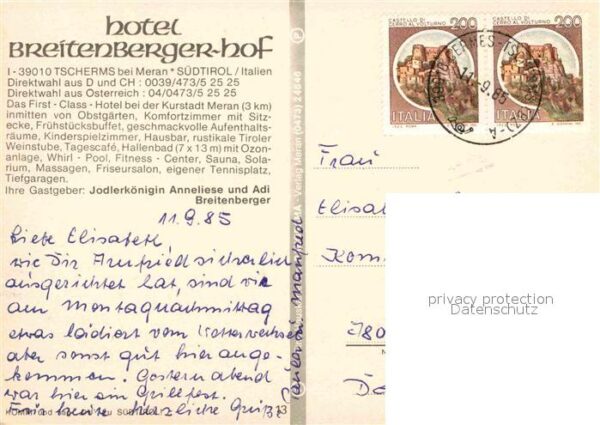 hotel
BREITENBERGER-HOF
I - 39010 TSCHERMS bei Meran * SÜDTIROL / Italien
Direktwahl aus D und CH : 0039/473/5 25 25
Direktwahl aus Österreich : 04/0473/5 25 25
Das First - Class - Hotel bei der Kurstadt Meran (3 km)
inmitten von Obstgärten, Komfortzimmer mit Sitz-
ecke, Frühstücksbuffet, geschmackvolle Aufenthalts-
räume, Kinderspielzimmer, Hausbar, rustikale Tiroler
Weinstube, Tagescafé, Hallenbad (7 x 13 m) mit Ozon-
anlage, Whirl - Pool, Fitness - Center, Sauna, Sola-
rium, Massagen, Friseursalon, eigener Tennisplatz,
Tiefgaragen.
Ihre Gastgeber: Jodlerkönigin Anneliese und Adi
Breitenberger
11.9.85
Liebe Elisabeth,
wie Dir Manfried sicherlich
ausgerichtet hat, sind wir
am Montagnachmittag
etwas lädiert vom Wetterwechsel
aber sonst gut hier ange-
kommen. Gestern abend
war hier ein Grillfest.
Für heute herzliche Grüße
Manfried
Verlag Meran (0473) 24646
CASTELLO DI
CERRO AL VOLTURNO
200
ITALIA
CASTELLO DI
CERRO AL VOLTURNO
200
ITALIA
11.-9.85
Frau
Elisa
Kom
D
privacy protection
Datenschutz